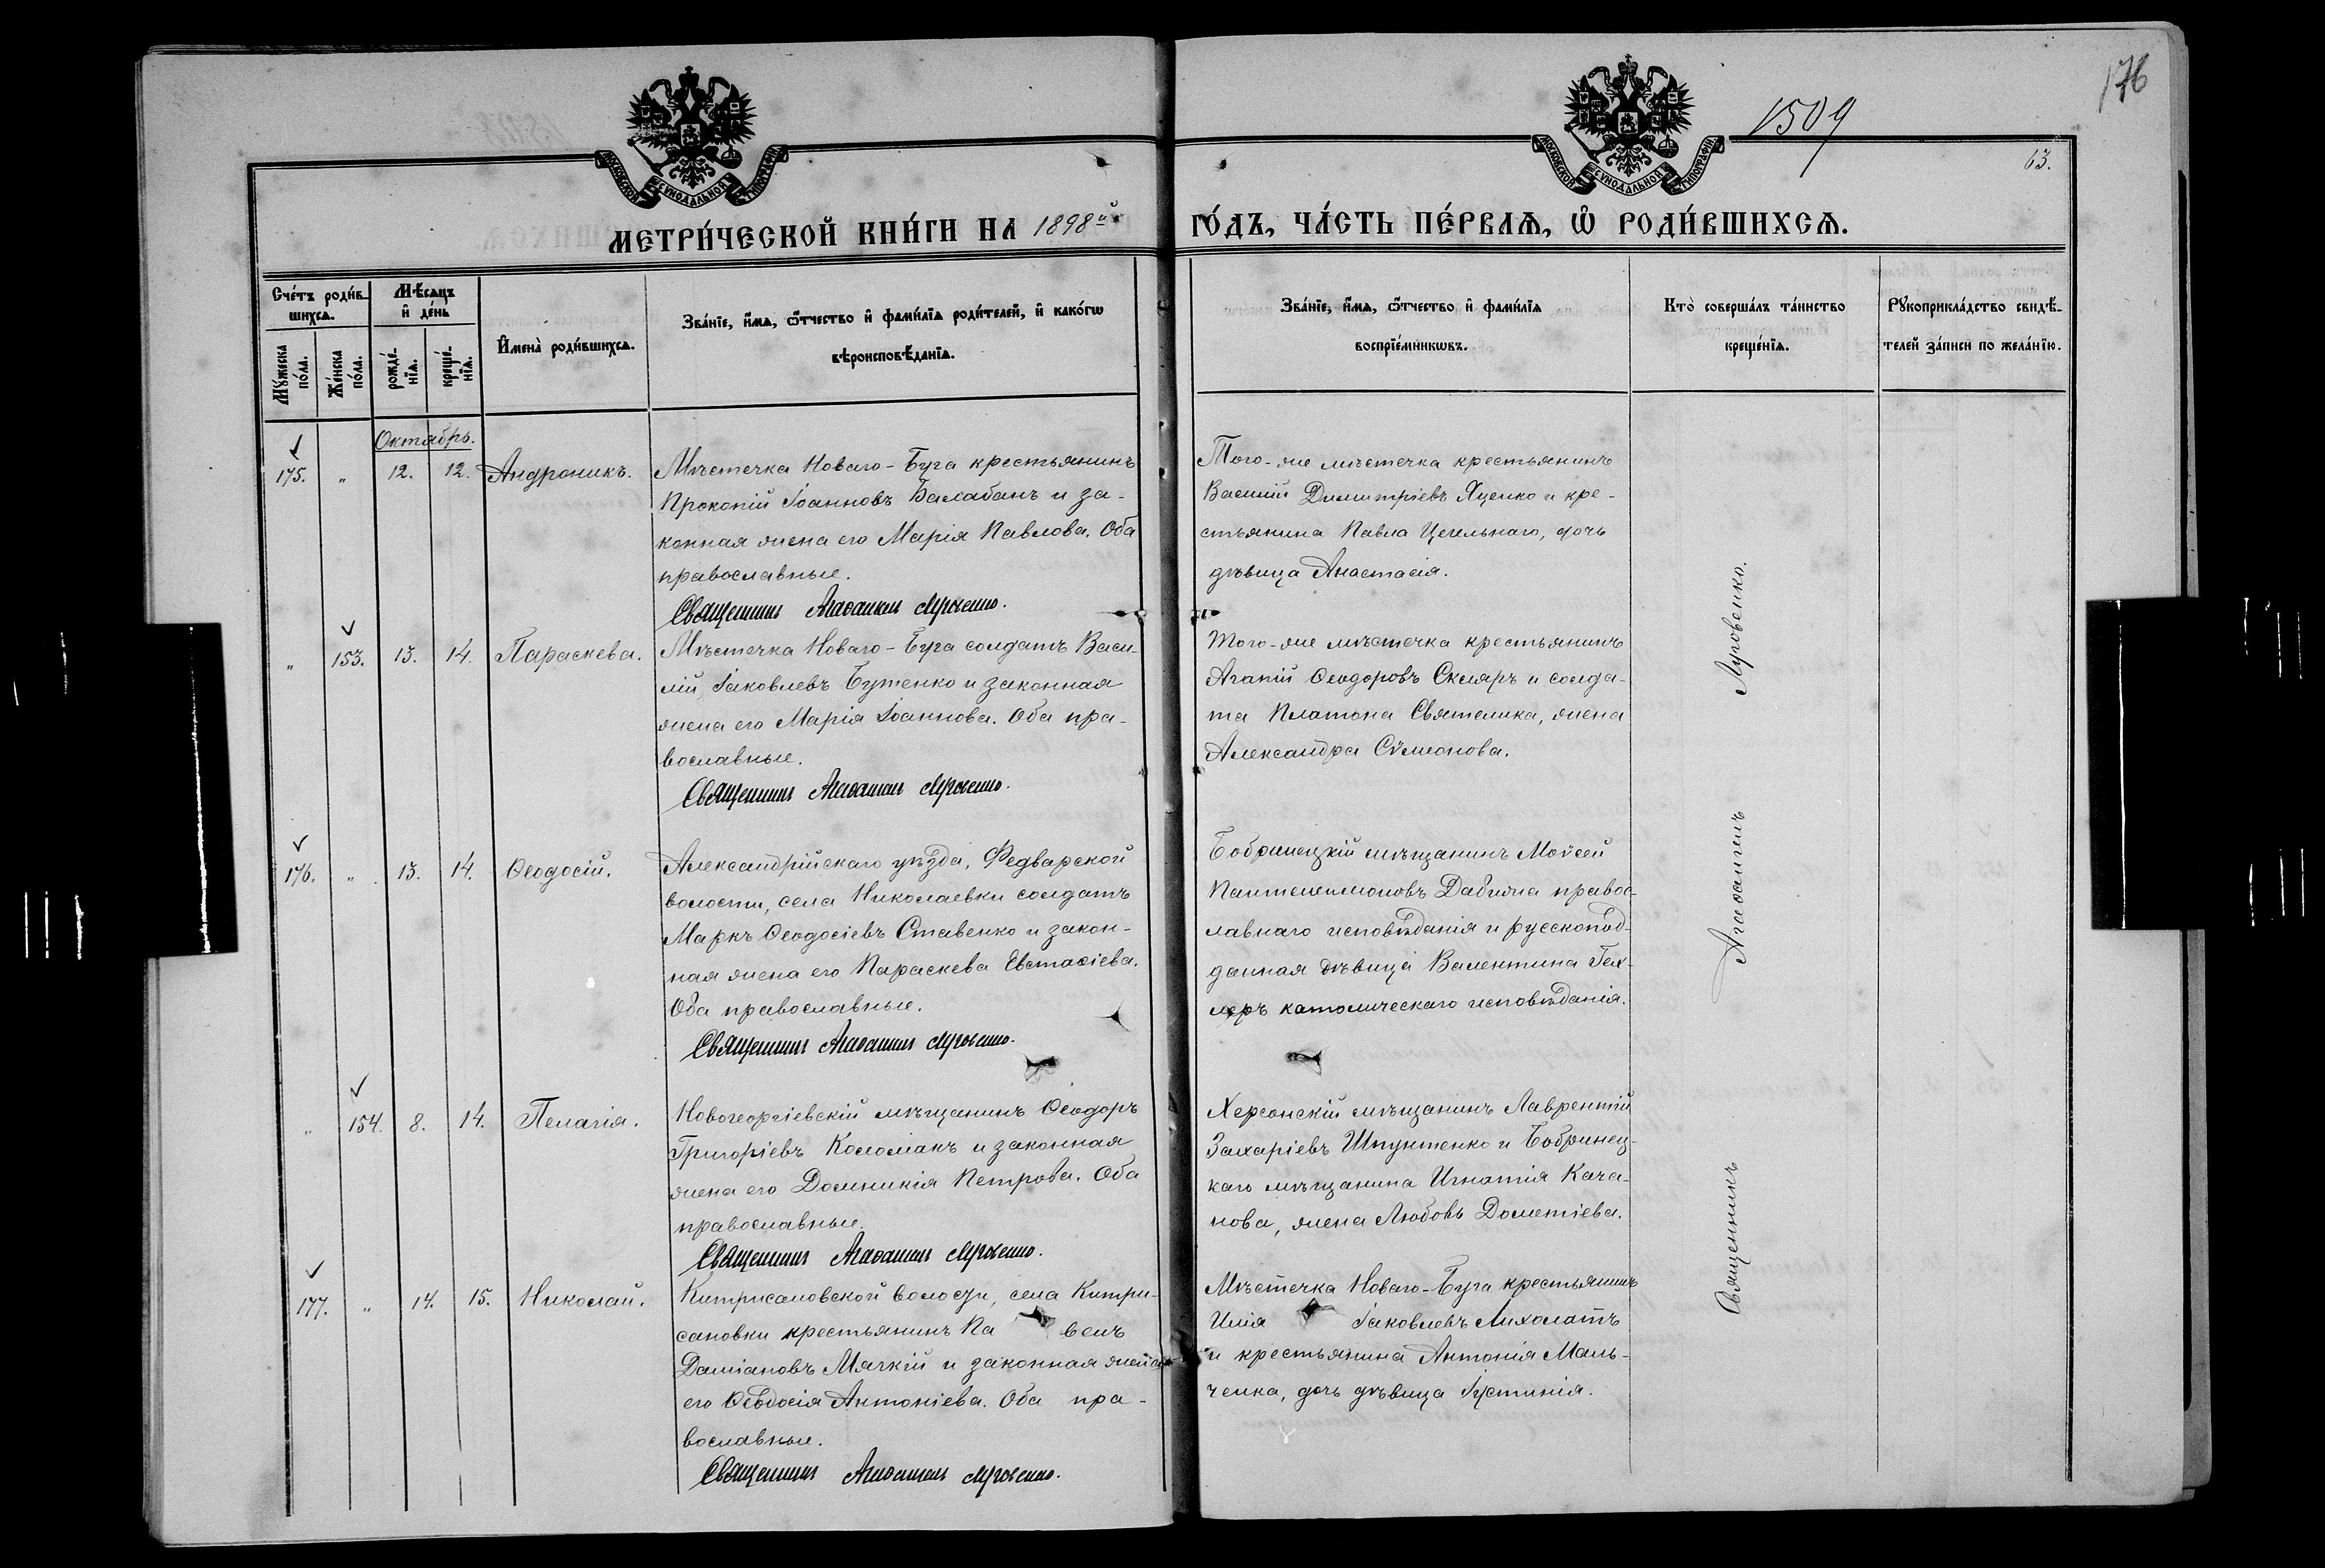 176
1509
63.
МОСКОВСКОЙ СѴНОДАЛЬНОЙ ТИПОГРАФІИ
МОСКОВСКОЙ СѴНОДАЛЬНОЙ ТИПОГРАФІИ
МЕТРИ́ЧЕСКОЙ КНИ́ГИ НА 1898й
ГО́ДЪ, ЧА́СТЬ ПЕ́РВАѦ, Ѡ҆ РОДИ́ВШИХСѦ.
Сче́тъ роди́в-
шихсѧ.
Мꙋ́жеска по́ла.
Же́нска по́ла.
Мѣ́сѧцъ
и҆ де́нь
рожде́-
нїѧ.
креще́-
нїѧ.
И҆мена̀ роди́вшихсѧ.
Зва́нїе, и҆́мѧ, ѻ҆́тчество и҆ фами́лїѧ роди́телей, и҆ како́гѡ
вѣроисповѣ́данїѧ.
Зва́нїе, и҆́мѧ, ѻ҆́тчество и҆ фами́лїѧ
воспрїе́мникѡвъ.
Кто̀ соверша́лъ та́инство
креще́нїѧ.
Рꙋкоприкла́дство свидѣ́-
телей за́писи по жела́нїю.
Октябрь.
175. „ 12. 12. Андроникъ.
Мѣстечка Новаго-Буга крестьянинъ
Прокопій Іоанновъ Балабанъ и за-
конная жена его Марія Павлова. Оба
православные.
Священникъ Агаѳангелъ Луговенко.
Того-же мѣстечка крестьянинъ
Василій Димитріевъ Яценко и кре-
стьянина Павла Цегельнаго, дочь
дѣвица Анастасія.
„ 153. 13. 14. Параскева.
Мѣстечка Новаго-Буга солдатъ Васи-
лій Іаковлевъ Бутенко и законная
жена его Марія Іоаннова. Оба пра-
вославные.
Священникъ Агаѳангелъ Луговенко.
Того-же мѣстечка крестьянинъ
Агапій Ѳеодоровъ Скляръ и солда-
та Платона Святелика, жена
Александра Сѵмеонова.
176. „ 13. 14. Ѳеодосій.
Александрійскаго уѣзда, Федварской
волости, села Николаевки солдатъ
Маркъ Ѳеодосіевъ Ставенко и закон-
ная жена его Параскева Евстаѳіева.
Оба православные.
Священникъ Агаѳангелъ Луговенко.
Бобринецкій мѣщанинъ Моѵсей
Пантелеимоновъ Дабижа правос-
лавнаго исповѣданія и русскопод-
данная дѣвица Валентина Гех-
леръ католическаго исповѣданія.
„ 154. 8. 14. Пелагія.
Новогеоргіевскій мѣщанинъ Ѳеодоръ
Григоріевъ Коломакъ и законная
жена его Домникія Петрова. Оба
православные.
Священникъ Агаѳангелъ Луговенко.
Херсонскій мѣщанинъ Лаврентій
Захаріевъ Шпунтенко и Бобринец-
каго мѣщанина Игнатія Кача-
нова, жена Любовь Дометіева.
177. „ 14. 15. Николай.
Китрисановской волости, села Китри-
сановки крестьянинъ Павелъ
Даміановъ Мяткій и законная жена
его Ѳеодосія Антоніева. Оба пра-
вославные.
Священникъ Агаѳангелъ Луговенко.
Мѣстечка Новаго-Буга крестьянинъ
Илія Іаковлевъ Лихолатъ
и крестьянина Антонія Маль-
ченка, дочь дѣвица Іустинія.
Священникъ Агаѳангелъ Луговенко.